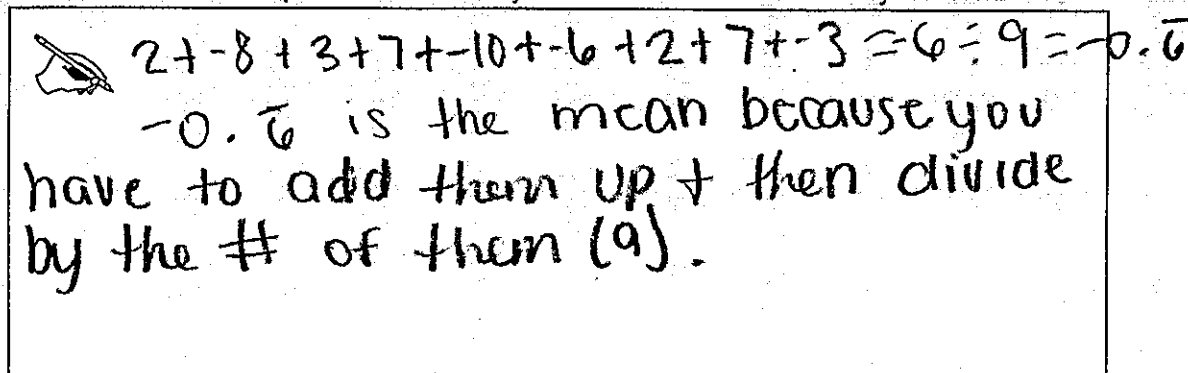 2+-8+3+7+-10+-6+2+7+-3=-6÷9=-0.6̅
-0.6̅ is the mean because you
have to add them up + then divide
by the # of them (9).